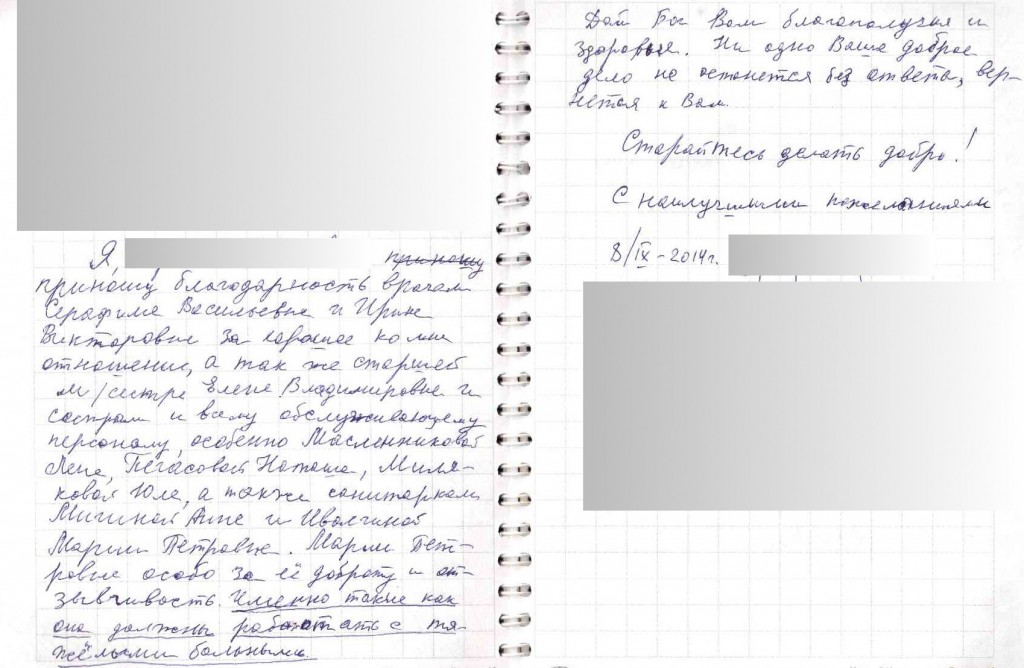 Я, приношу
приношу благодарность врачам
Серафиме Васильевне и Ирине
Викторовне за хорошее ко мне
отношение, а так же старшей
м/сестре Елене Владимировне и
сёстрам и всему обслуживающему
персоналу, особенно Масленниковой
Лене, Пегасовой Наташе, Миля-
ковой Юле, а также санитаркам
Мичиной Анне и Иволгиной
Марии Петровне. Марии Пет-
ровне особо за её доброту и от-
зывчивость. Именно такие как
она должны работать с тя-
жёлыми больными.
Дай Бог Вам благополучия и
здоровье. Ни одно Ваше доброе
дело не останется без ответа, вер-
нется к Вам.
Старайтесь делать добро!
С наилучшими пожеланиями
8/IX - 2014г.